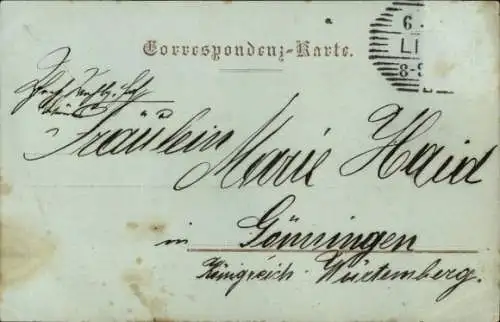 Correspondenz-Karte.
6.
LI
8-9
Fräulein
Marie Haid
in Gönningen
Königreich Würtemberg.